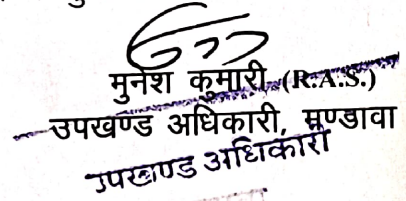 मुनेश कुमारी (R.A.S.)
उपखण्ड अधिकारी, मण्डावा
उपखण्ड अधिकारी